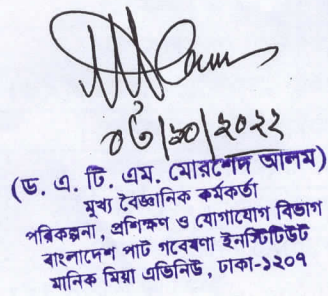 ০৬/১০/২০২২
(ড. এ. টি. এম. মোরশেদ আলম)
মুখ্য বৈজ্ঞানিক কর্মকর্তা
পরিকল্পনা, প্রশিক্ষণ ও যোগাযোগ বিভাগ
বাংলাদেশ পাট গবেষণা ইনস্টিটিউট
মানিক মিয়া এভিনিউ, ঢাকা-১২০৭